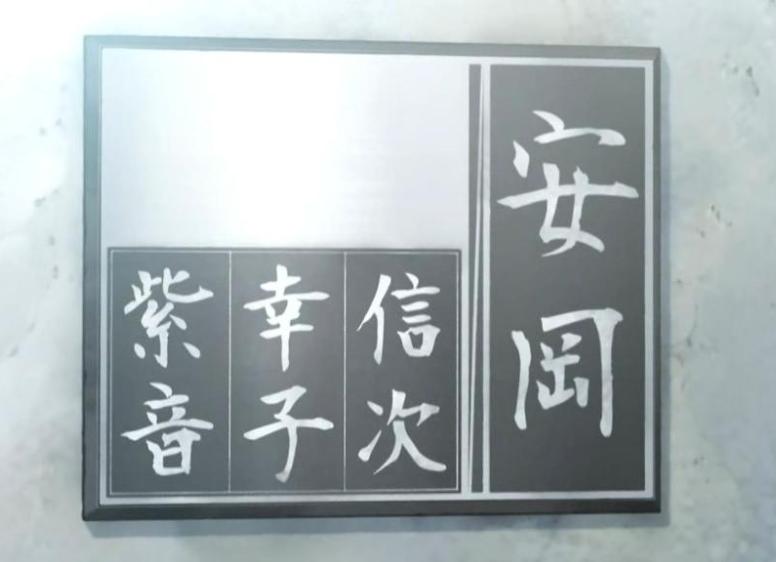 安岡
信次
幸子
紫音